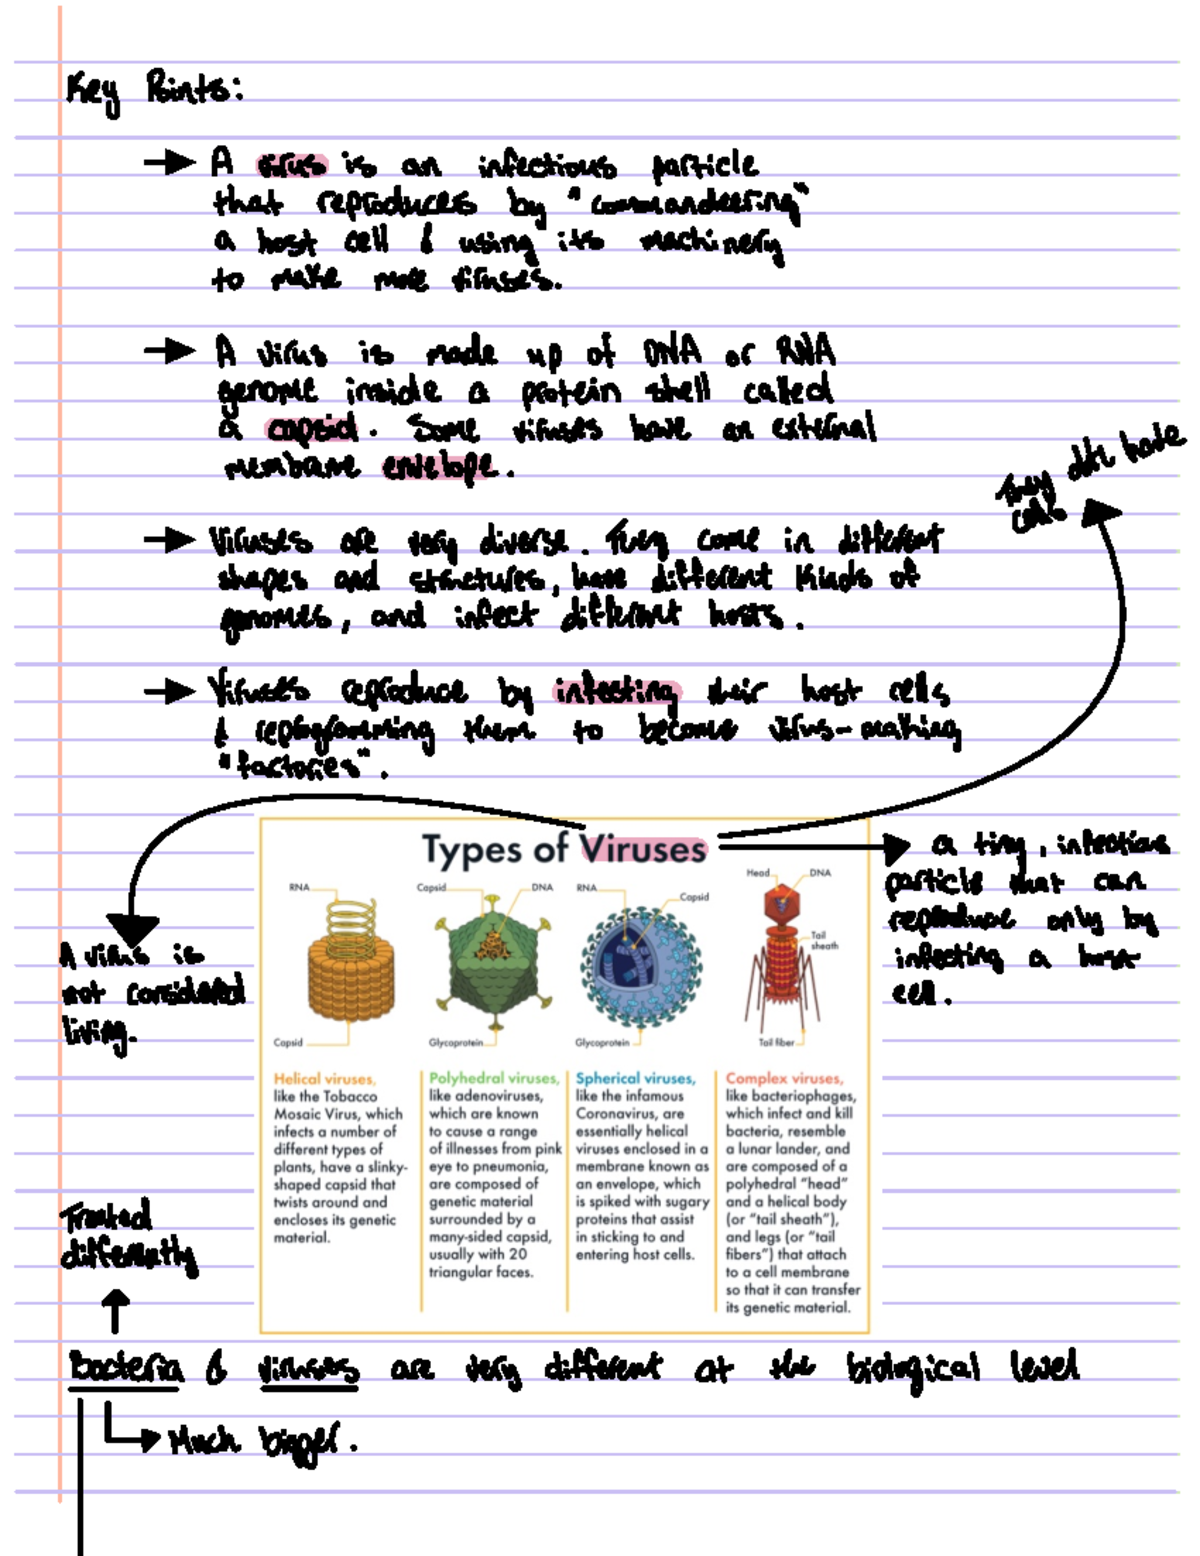 Key Points:
→ A virus is an infectious particle
that reproduces by "commandeering"
a host cell & using its machinery
to make more viruses.
→ A virus is made up of DNA or RNA
genome inside a protein shell called
a capsid. Some viruses have an external
membrane envelope.
They don't have
cells
→ Viruses are very diverse. They come in different
shapes and structures, have different kinds of
genomes, and infect different hosts.
→ Viruses reproduce by infecting their host cells
& reprogramming them to become virus-making
"factories".
Types of Viruses
a tiny, infectious
particle that can
reproduce only by
infecting a host
cell.
A virus is
not considered
living.
RNA
Capsid
Capsid
DNA
Glycoprotein
RNA
Capsid
Glycoprotein
Head
DNA
Tail
sheath
Tail fiber
Helical viruses,
like the Tobacco
Mosaic Virus, which
infects a number of
different types of
plants, have a slinky-
shaped capsid that
twists around and
encloses its genetic
material.
Polyhedral viruses,
like adenoviruses,
which are known
to cause a range
of illnesses from pink
eye to pneumonia,
are composed of
genetic material
surrounded by a
many-sided capsid,
usually with 20
triangular faces.
Spherical viruses,
like the infamous
Coronavirus, are
essentially helical
viruses enclosed in a
membrane known as
an envelope, which
is spiked with sugary
proteins that assist
in sticking to and
entering host cells.
Complex viruses,
like bacteriophages,
which infect and kill
bacteria, resemble
a lunar lander, and
are composed of a
polyhedral "head"
and a helical body
(or "tail sheath"),
and legs (or "tail
fibers") that attach
to a cell membrane
so that it can transfer
its genetic material.
Treated
differently
Bacteria & viruses are very different at the biological level
Much bigger.